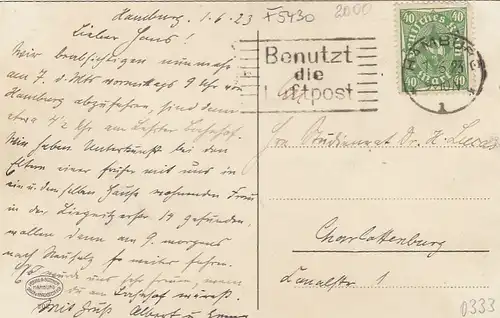 Hamburg, 1.6.23
Lieber Hans!
Wir beabsichtigen nunmehr
am 7. d. Mts vormittags 9 Uhr von
Hamburg abzufahren, sind dann
etwa 4½ Uhr am Lehrter Bahnhof.
Wir haben Unterkunft bei den
Eltern einer früher mit uns in
ein u demselben Hause wohnenden Frau
in der Liegnitzerstr 14 gefunden,
wollen dann am 9. morgens
nach Neusalz weiter fahren.
würde uns sehr freuen, wenn
du am Bahnhof wärest.
Mit Gruß Albert u
5430
2000
Benutzt
die
Luftpost
Deutsches Reich
40
40
40 Mark 40
HAMBURG
1
Studienrat Dr. H. Lucas
Charlottenburg
1
0333